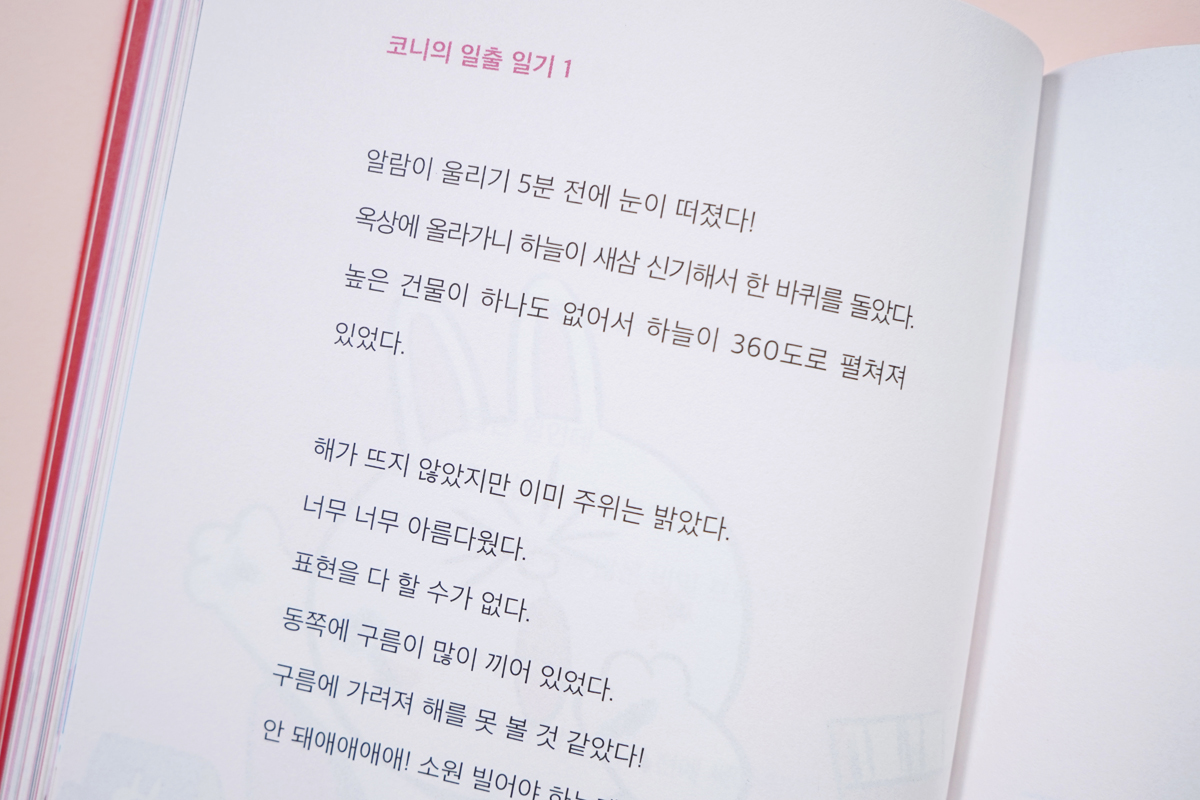 코니의 일출 일기 1
알람이 울리기 5분 전에 눈이 떠졌다!
옥상에 올라가니 하늘이 새삼 신기해서 한 바퀴를 돌았다.
높은 건물이 하나도 없어서 하늘이 360도로 펼쳐져
있었다.
해가 뜨지 않았지만 이미 주위는 밝았다.
너무 너무 아름다웠다.
표현을 다 할 수가 없다.
동쪽에 구름이 많이 끼어 있었다.
구름에 가려져 해를 못 볼 것 같았다!
안 돼애애애애! 소원 빌어야